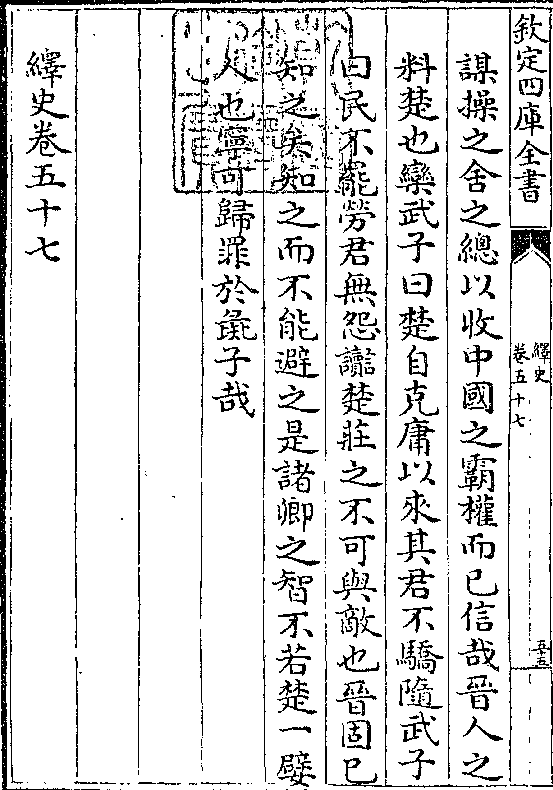 欽定四庫全書
繹史
卷五十七
五十五
謀操之舍之總以收中國之霸權而已信哉晉人之
料楚也欒武子曰楚自克庸以來其君不驕隨武子
曰民不罷勞君無怨讟楚莊之不可與敵也晉固已
知之矣知之而不能避之是諸卿之智不若楚一嬖
人也寧可歸罪於彘子哉
繹史卷五十七